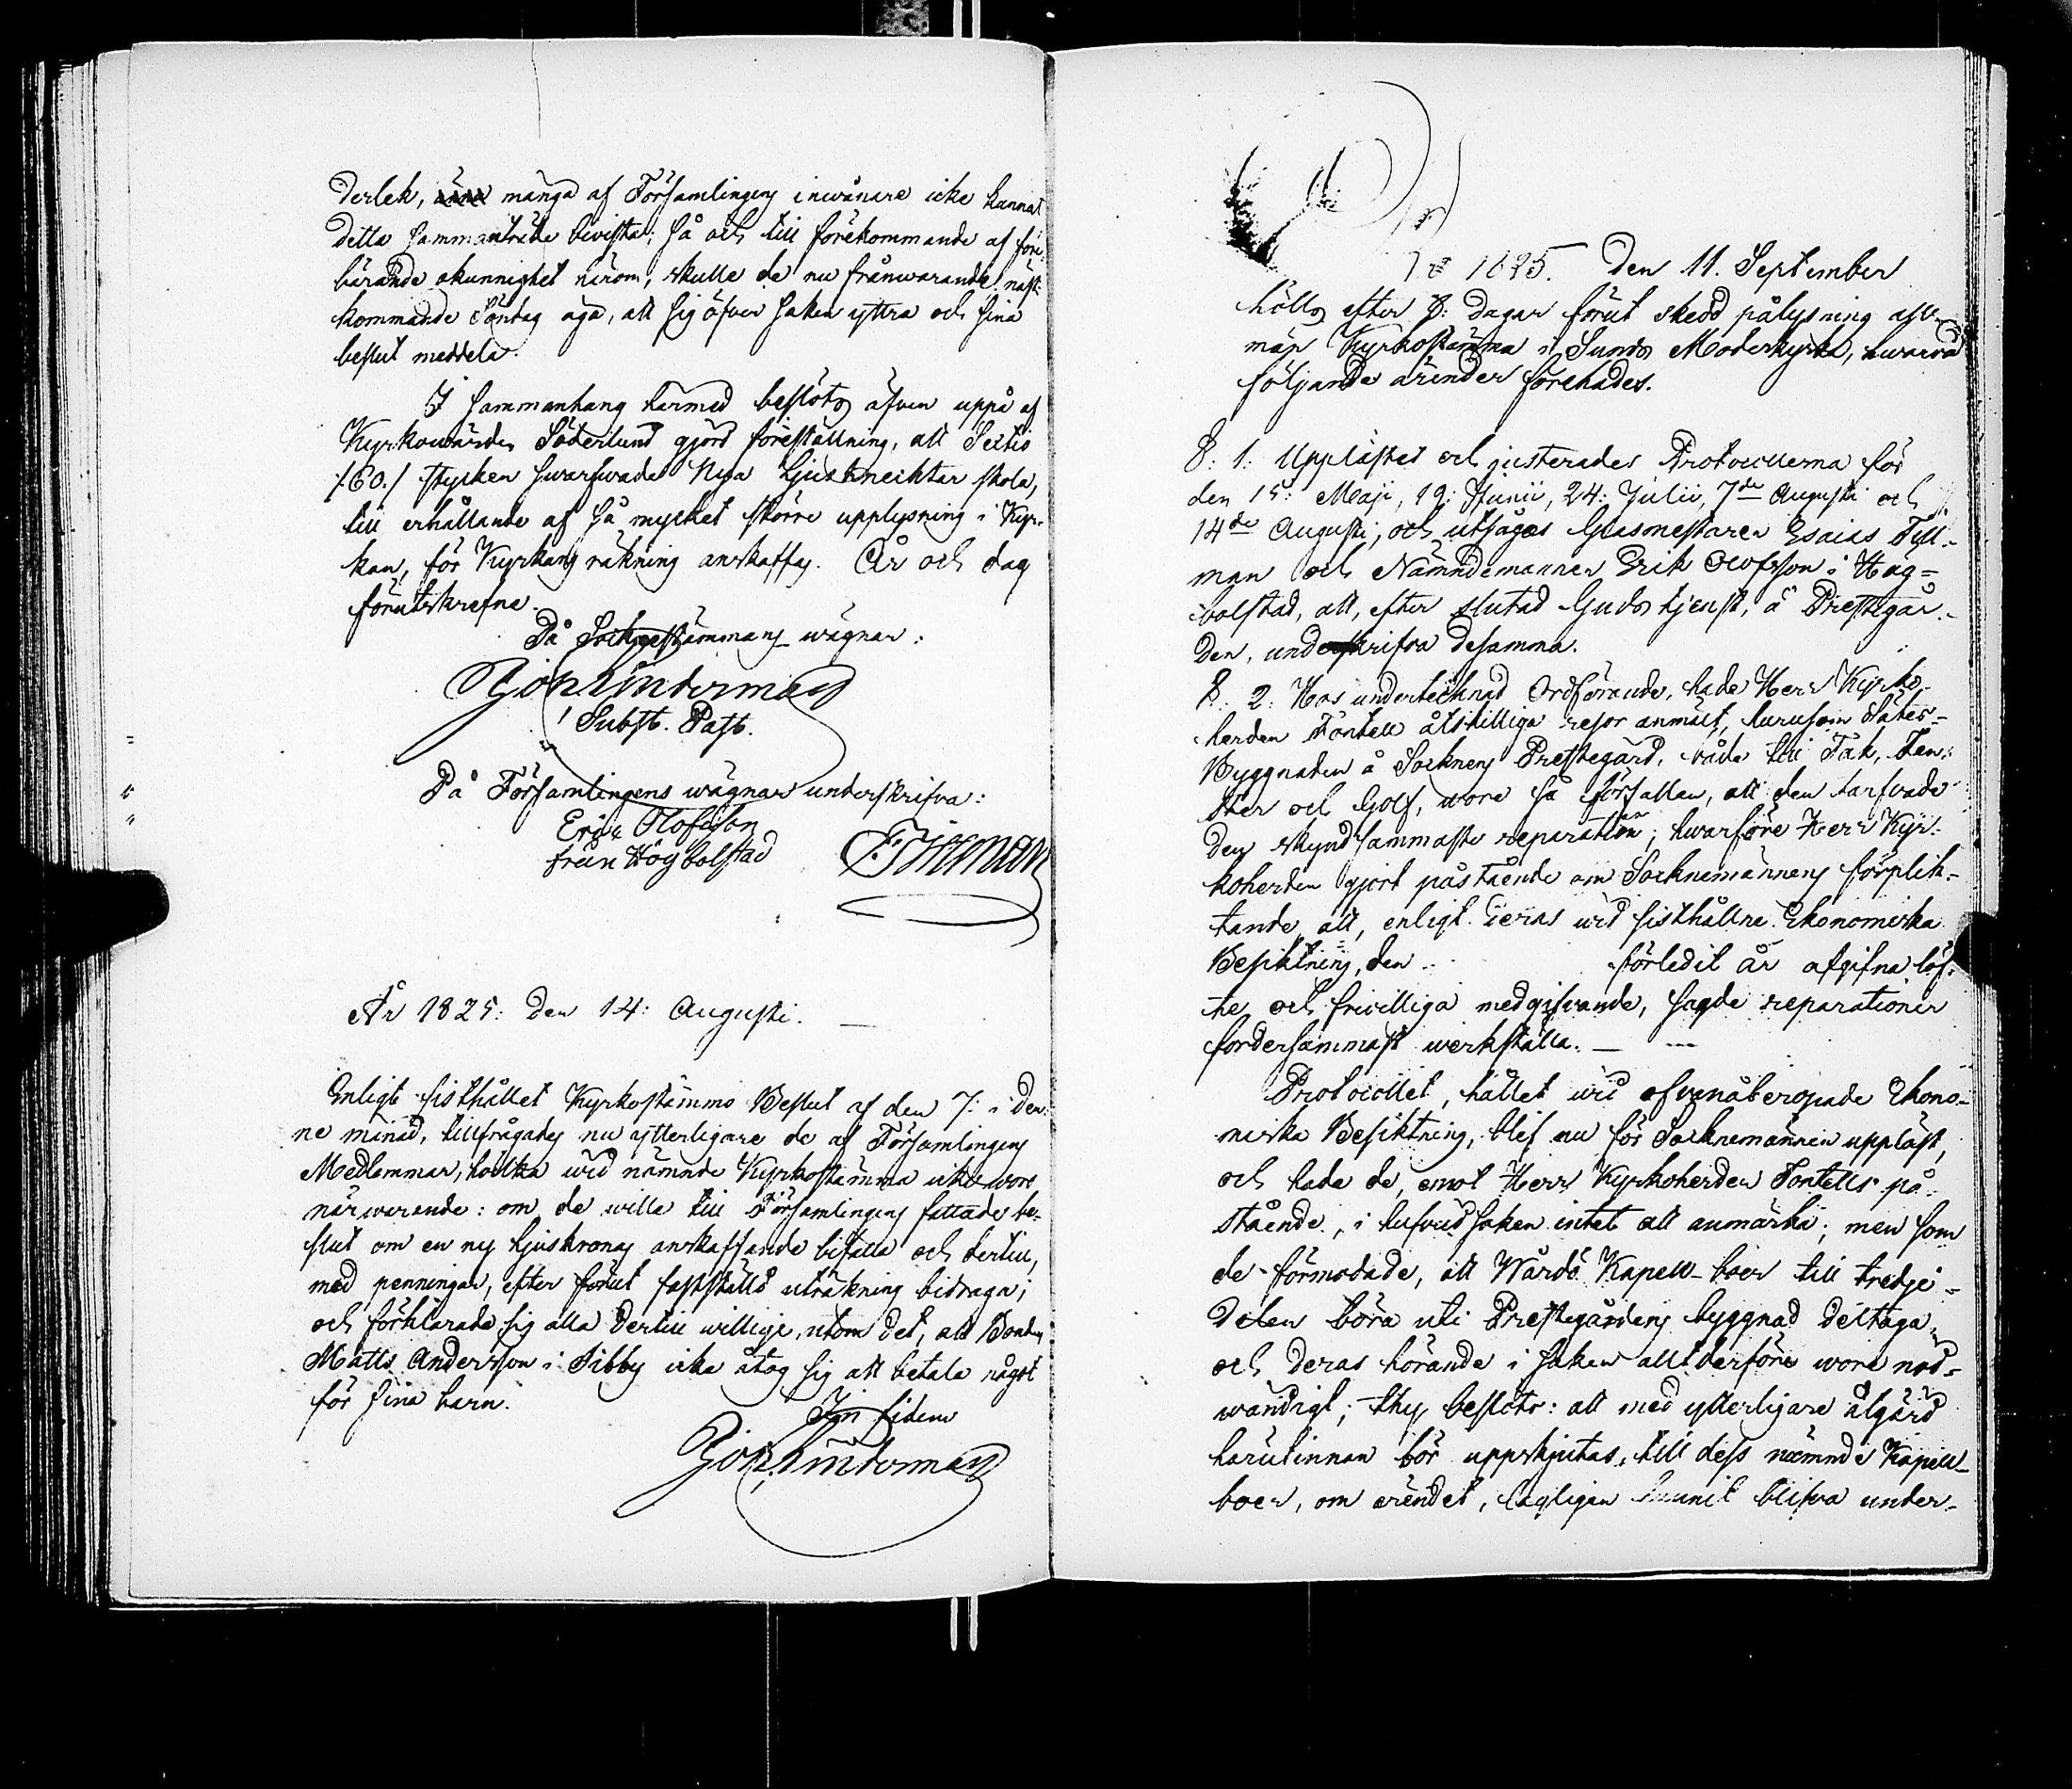 derlek, många af Församlingens inwånare icke kunnat
detta sammanträde bevista; så och till förekommande af före-
bärande okunnighet härom, skulle de nu frånwarande näst-
kommande Söndag äga, att sig öfver saken yttra och sina
beslut meddela.
I sammanhang härmed beslöts äfven uppå af
Kyrkowärden Söderlund gjord föreställning, att Sextio
/60./ stycken swarfwade Nya Ljusknecktar skola,
till erhållande af så mycket större upplysning i Kyr-
kan, för Kyrkans räkning anskaffas. År och dag
förutskrefne.
På Sochnestämmans wägnar:
Joh Lindermans
Subst. Past.
På Församlingens wägnar underskrifva:
Eric Olofsson
från Högbolstad
E Tillman
År 1825: den 14: Augusti.
Enligt sisthållet Kyrkostämmo Beslut af den 7: i den-
ne månad, tillfrågades nu ytterligare de af Församlingens
Medlemmar, hvilka wid nämnde Kyrkostämma icke wore
närwarande: om de wille till Församlingens fattade be-
slut om en ny ljuskronas anskaffande bifalla och dertill,
med penningar, efter förut fastställd uträkning bidraga;
och förklarade sig alla dertill willige, utom det, att Bonden
Matts Andersson i Tibby icke åtog sig att betala något
för sina barn.
In fidem
Joh Lindermans
År 1825. den 11. September
hölls efter 8: dagar förut skedd pålysning all-
män Kyrkostämma i Sunds Moderkyrka, hwarvid
följande ärender förehades.
§: 1: Upplästes och justerades Protocollerna för
den 15: Maji, 19: Junii, 24: Julii, 7de Augusti och
14de Augusti, och utsågos Glasmestaren Esaias Till-
man och Nämndemannen Erik Olofsson i Hög-
bolstad, att, efter slutad Gudstjenst, å Prestegår-
den, underskrifva desamma.
§: 2: Hos undertecknad Ordförande, hade Herr Kyrko-
herden Fontell åtskilliga resor anmält, hurusom Sätes-
Byggnaden å Socknens Prestegård, både till Tak, Fen-
ster och Golf, wore så förfallen, att den tarfvade
den skyndsammaste reparation; hwarföre Herr Kyr-
koherden gjort påstående om Socknemännens förplik-
tande att, enligt deras wid sisthållne Ekonomiska
Besiktning, den förledit år afgifna löf-
te och frivilliga medgifvande, sagde reparationer
fordersammast werkställa.
Protocollet, hållet wid ofvanåberopade Ekono-
miska Besiktning, blef nu för Socknemännen uppläst,
och hade de, emot Herr Kyrkoherden Fontells på-
stående, i hufvudsaken intet att anmärka; men som
de förmodade, att Wårdö Kapell-boer till tredje-
delen böra uti Prestegårdens byggnad deltaga
och deras hörande i saken alltderföre wore nöd-
wändigt; thy beslöts: att med ytterligare åtgärd
härutinnan bör uppskjutas, till dess nämnde Kapell-
boer, om ärendet, lagligen hunnit blifva under-